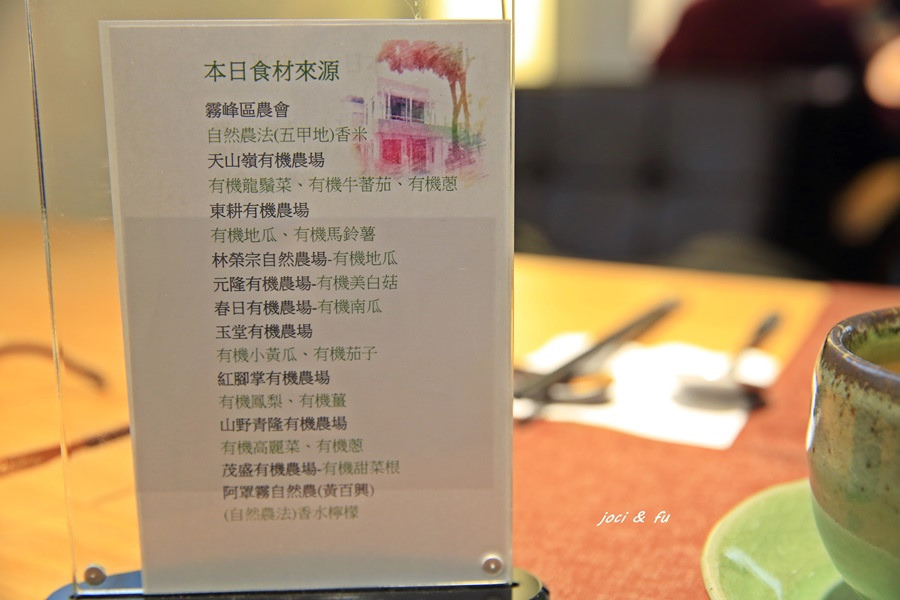 本日食材來源
霧峰區農會
自然農法(五甲地)香米
天山嶺有機農場
有機龍鬚菜、有機牛蕃茄、有機蔥
東耕有機農場
有機地瓜、有機馬鈴薯
林榮宗自然農場-有機地瓜
元隆有機農場-有機美白菇
春日有機農場-有機南瓜
玉堂有機農場
有機小黃瓜、有機茄子
紅腳掌有機農場
有機鳳梨、有機薑
山野青隆有機農場
有機高麗菜、有機蔥
茂盛有機農場-有機甜菜根
阿罩霧自然農(黃百興)
(自然農法)香水檸檬
joci & fu